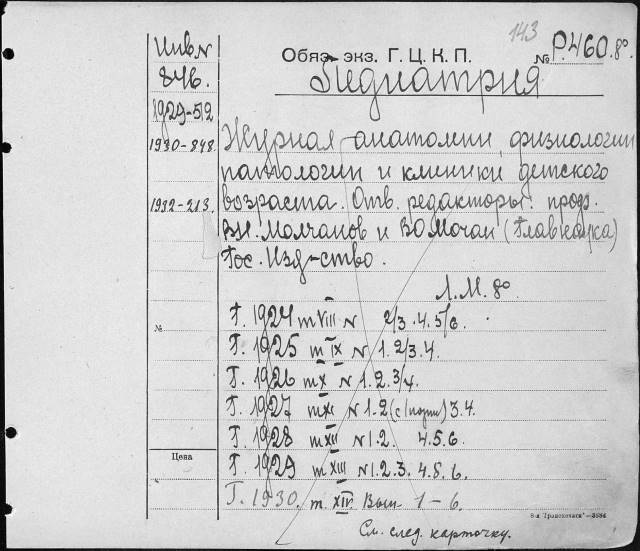 143
Инв. N
846.
1929-512
1930-848.
1932-213.
№
Цена
Обяз. экз. Г. Ц. К. П.
№ Р.460.8°
Педиатрия
Журнал анатомии, физиологии
патологии и клиники детского
возраста. Отв. редакторы: проф.
В.И. Молчанов и В.О. Мочан (Главнаука)
Гос. Изд-ство.
Л.М. 8°
Г. 1924 т VIII N 2/3. 4. 5/6.
Г. 1925 т IX N 1. 2/3. 4.
Г. 1926 т X N 1. 2. 3/4.
Г. 1927 т XI N 1-2 (с/ ) 3. 4.
Г. 1928 т XII N 1. 2. 4. 5. 6.
Г. 1929 т XIII N 1. 2. 3. 4. 5. 6.
Г. 1930. т. XIV. Вып. 1-6.
См. след. карточку.